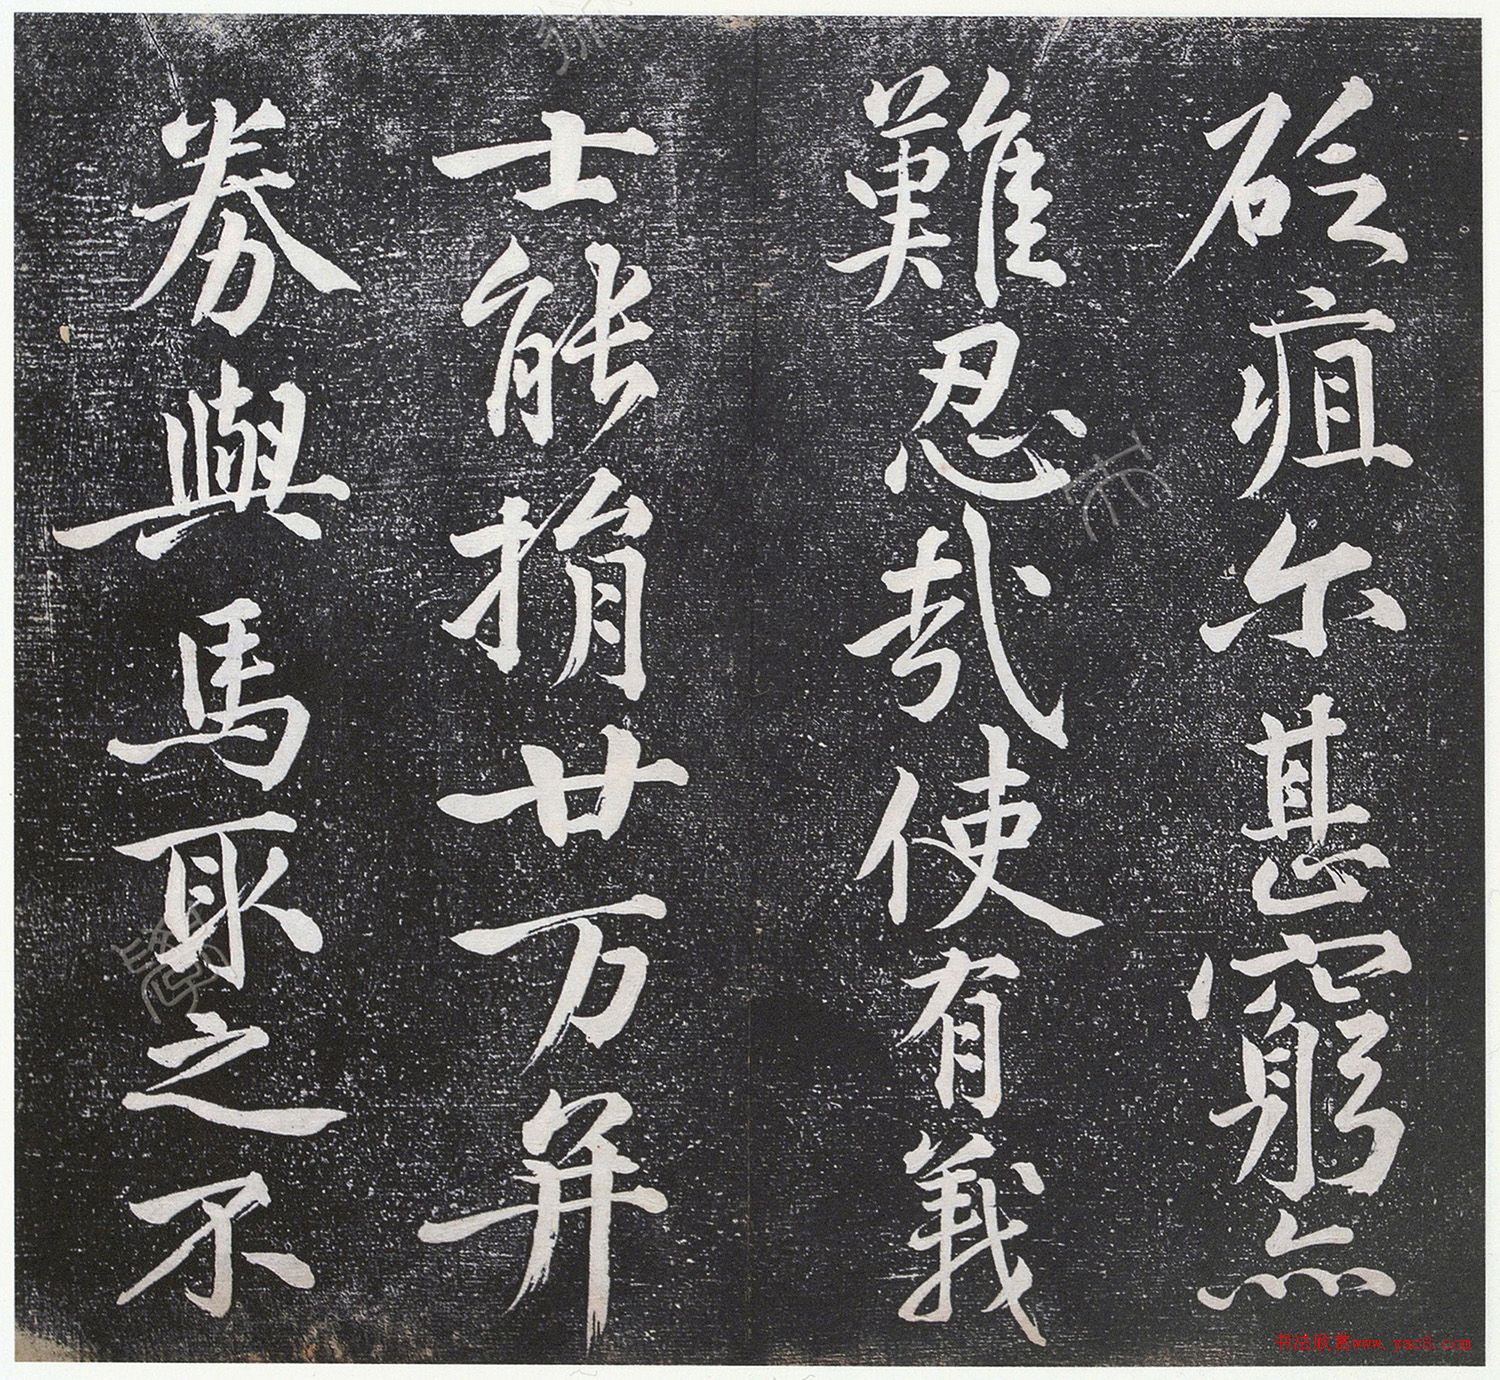 砭疽尔甚窮亦
難忍哉使有義
士能捐廿万并
券與馬取之不
书法欣赏www.yac8.com